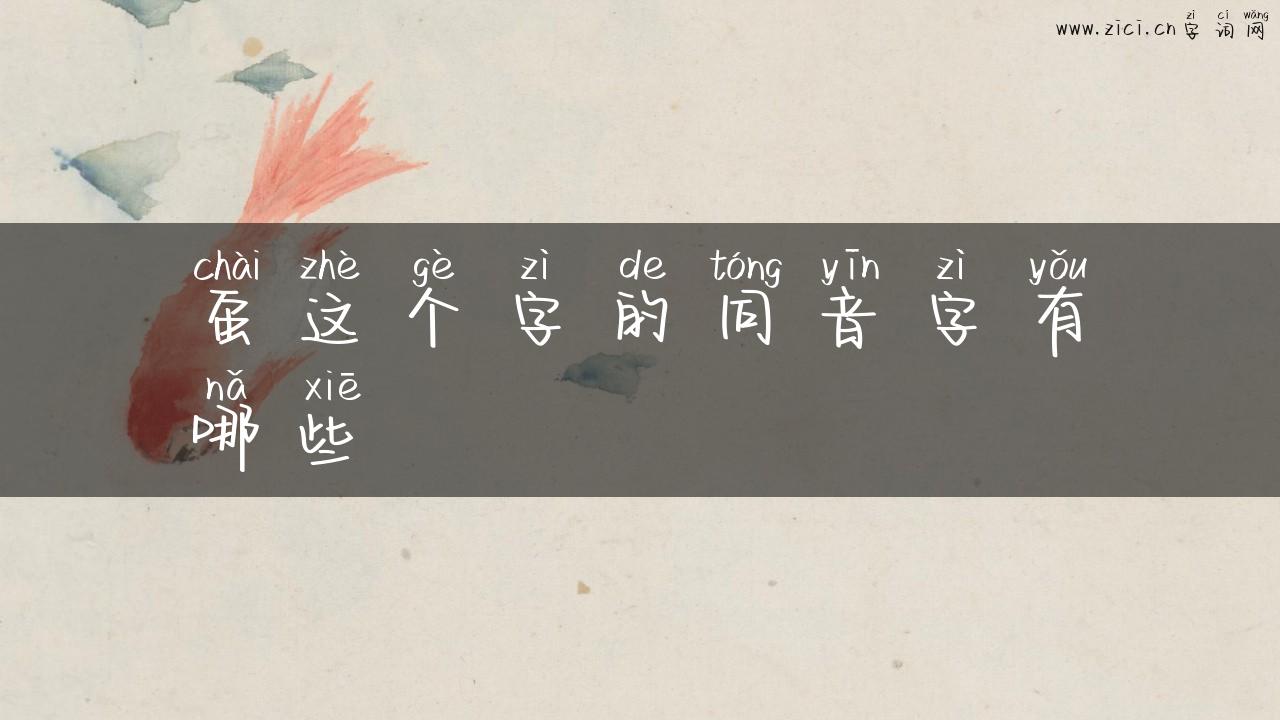 zì cí wǎng
www.zici.cn 字 词 网
chài zhè gè zì de tóng yīn zì yǒu
虿 这 个 字 的 同 音 字 有
nǎ xiē
哪 些